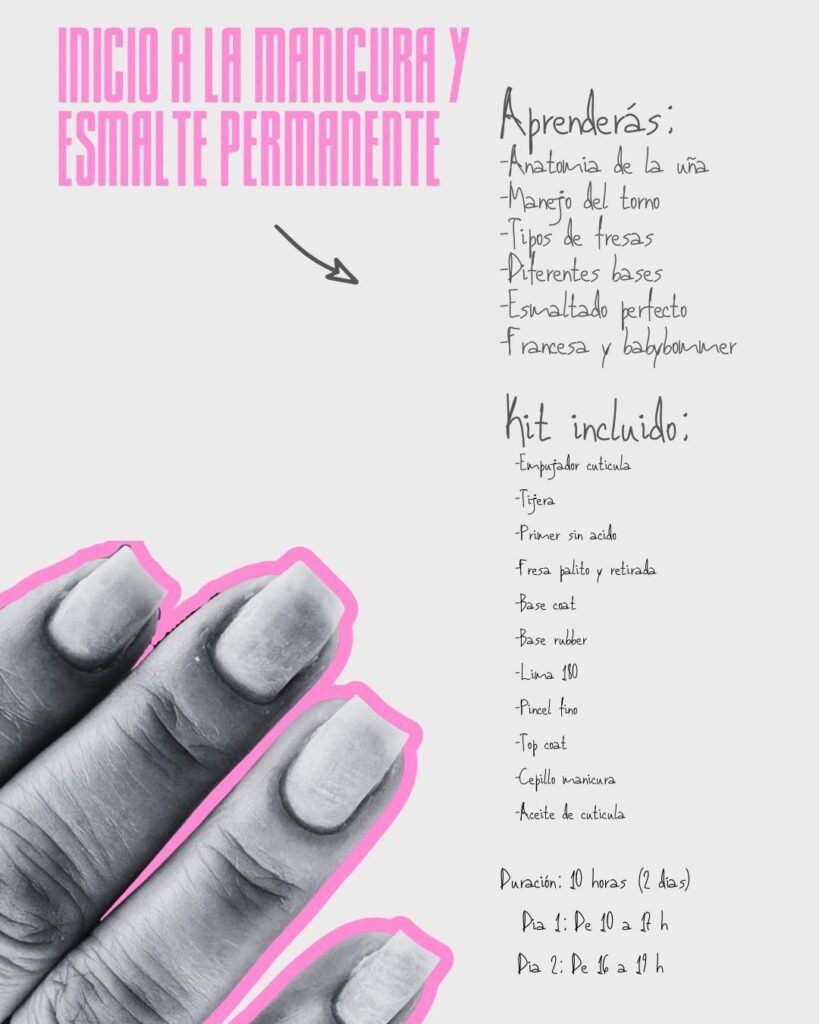 INICIO A LA MANICURA Y
ESMALTE PERMANENTE
Aprenderás:
-Anatomia de la uña
-Manejo del torno
-Tipos de fresas
-Diferentes bases
-Esmaltado perfecto
-Francesa y babybommer
Kit incluido:
-Empujador cuticula
-Tijera
-Primer sin acido
-Fresa palito y retirada
-Base coat
-Base rubber
-Lima 180
-Pincel fino
-Top coat
-Cepillo manicura
-Aceite de cuticula
Duración: 10 horas (2 días)
Dia 1: De 10 a 17 h
Dia 2: De 16 a 19 h